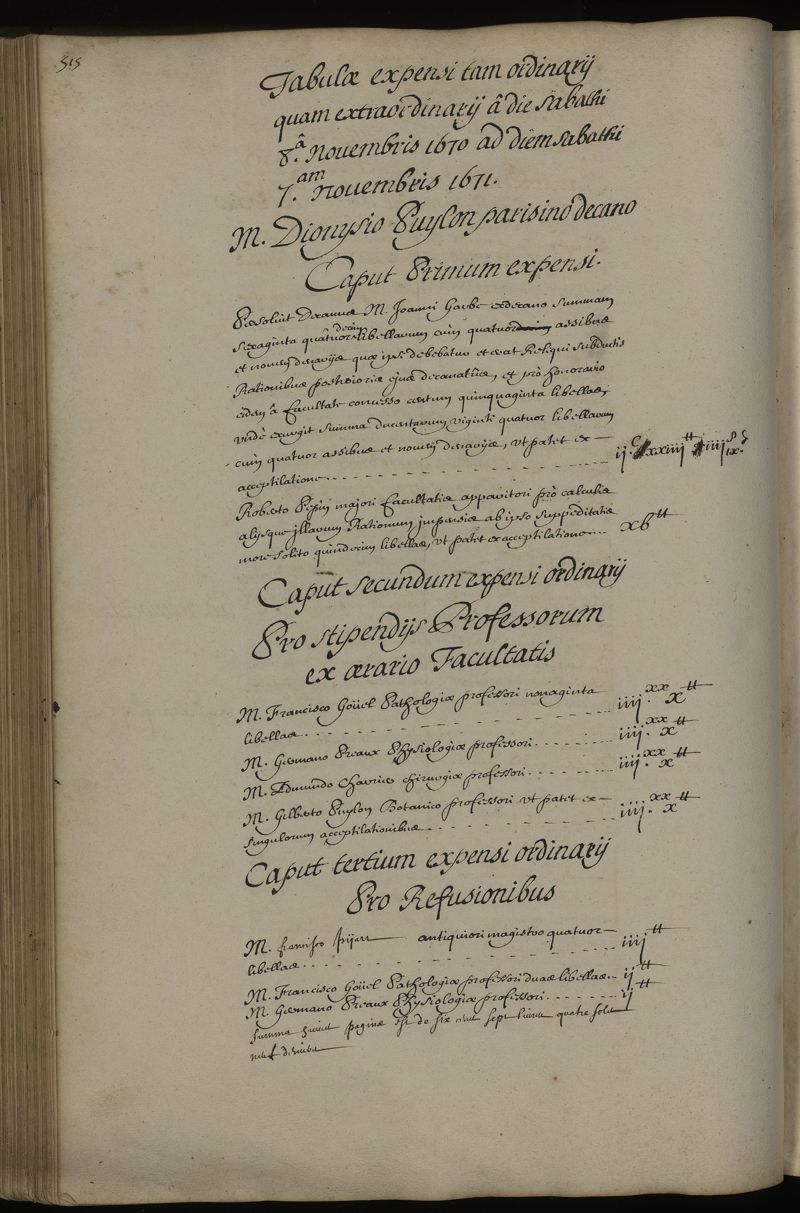 515
Tabulæ expensi tam ordinarij
quam extraordinarij â die sabathi
8.â Nouembris 1670 ad diem sabathi
7.am nouembris 1671.
M. Dionysio Puylon parisino decano
Caput Primum expensi.
Persoluit Decanus M. Joanni Garbe exdecano summam
sexaginta quatuor decim libellarum cum quatuor assibus
et nouem denarijs quæ ipsi debebatur et erat Reliqui subductis
Rationibus posterioris ejus decanatus, et prò honorario
eidem â Facultate concesso centum quinquaginta libellas,
vndè exurgit summa ducentarum viginti quatuor libellarum
cùm quatuor assibus et nouem denarijs, vt patet ex
acceptilatione ij.C xxiiij tt iiij s ix. d
Roberto Pepin majori Facultatis apparitori prò calculis
alijsque jllarum Rationum jmpensis ab ipso suppeditatis
more solito quindecim libellas, vt patet ex acceptilatione xb tt
Caput secundum expensi ordinarij
Pro stipendijs Professorum
ex ærario Facultatis
M. Francisco Goüel Pathologiæ professori nonaginta
libellas iiij.xx x tt
M. Germano Preaux Physiologiæ professori iiij.xx x tt
M. Edmundo chirurgiæ professori iiij.xx x tt
M. Gilberto Puylon Botanico professori vt patet ex
singulorum acceptilationibus iiij.xx x tt
Caput tertium expensi ordinarij
Pro Refusionibus
M. francisco antiquiori magistro quatuor
libellas iiij tt
M. Francisco Goüel Pathologiæ professori duas libellas ij tt
M. Germano Preaux Physiologiæ professori ij tt
summa paginæ est de six cent sept liures quatre sols
neuf deniers